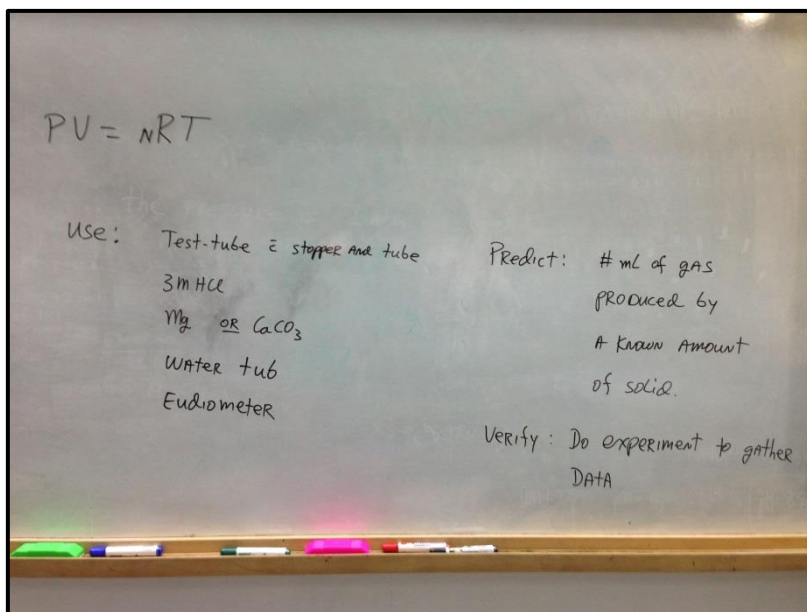 PV = nRT
Use:
Test-tube c̄ stopper and tube
3m HCl
Mg OR CaCO₃
Water tub
Eudiometer
Predict: # mL of gas
produced by
a known amount
of solid.
Verify: Do experiment to gather
Data